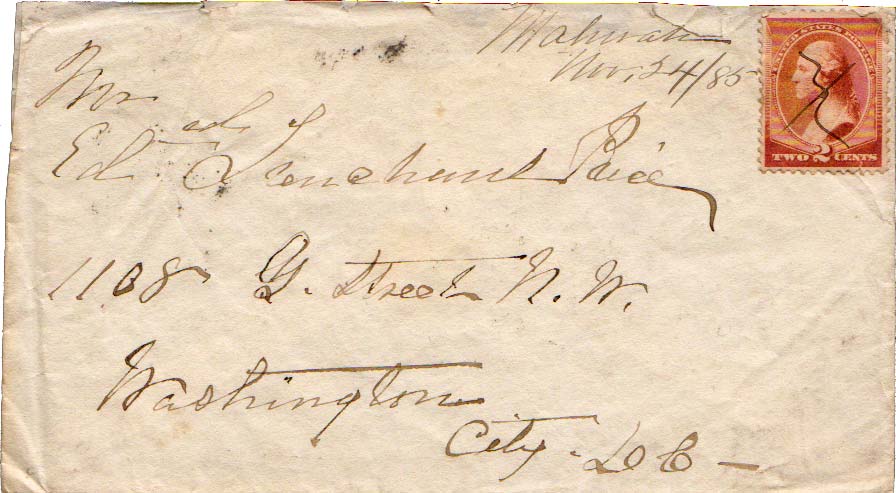 Mahwah
Nov, 24/85
UNITED STATES POSTAGE
TWO 2 CENTS
Mr
Edᵈ Trenchard
1108 G. Street N. W.
Washington
City. D C —